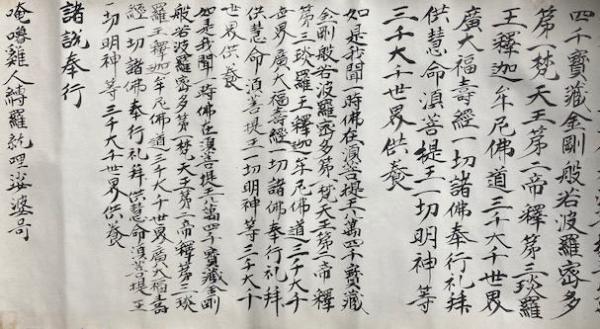 四千寶藏金剛般若波羅密多
第一梵天王第二帝釋第三琰羅
王釋迦牟尼佛道三千大千世界
廣大福壽經一切諸佛奉行礼拜
供慧命湏菩提王一切明神等
三千大千世界供養
如是我聞一時佛在湏菩提王八萬四千寶藏
金剛般若波羅密多第一梵天王第二帝釋
第三琰羅王釋迦牟尼佛道三千大千
世界廣大福壽經一切諸佛奉行礼拜
供慧命湏菩提王一切明神等三千大千
世界供養
如是我聞一時佛在湏菩提八萬四千寶藏金剛
般若波羅密多第一梵天王第二帝釋第三琰
羅王釋迦牟尼佛道三千大千世界廣大福壽
經一切諸佛奉行礼拜供慧命湏菩提王
一切明神等三千大千世界供養
諸說奉行
唵嚕雞人縛羅訖哩娑婆哥